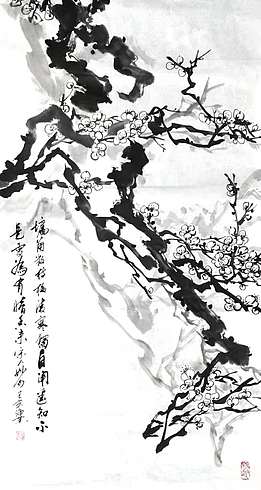 墙角数枝梅凌寒独自开遥知不
是雪为有暗香来宋人妙句